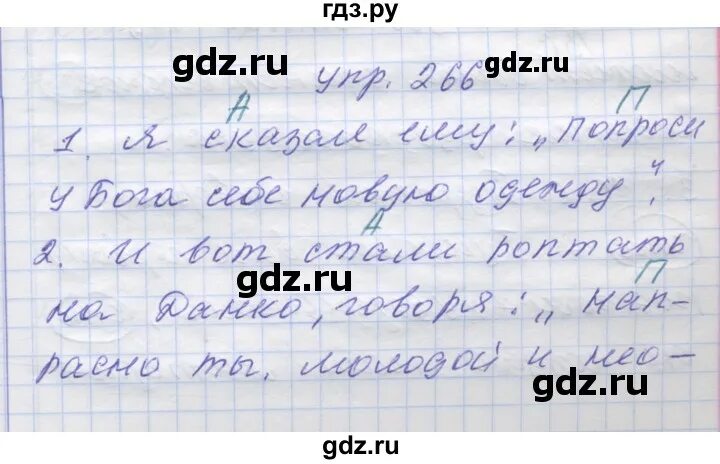 гдз.ру
gdz.ru gdz.ru
упр. 266
А П
1. Я сказал ему: „Попроси
у Бога себе новую одежду".
А
2. И вот стали роптать
gdz.ru
П
на Данко, говоря: „Нап-
расно ты, молодой и нео-
gdz.ru gdz.ru
gdz.ru